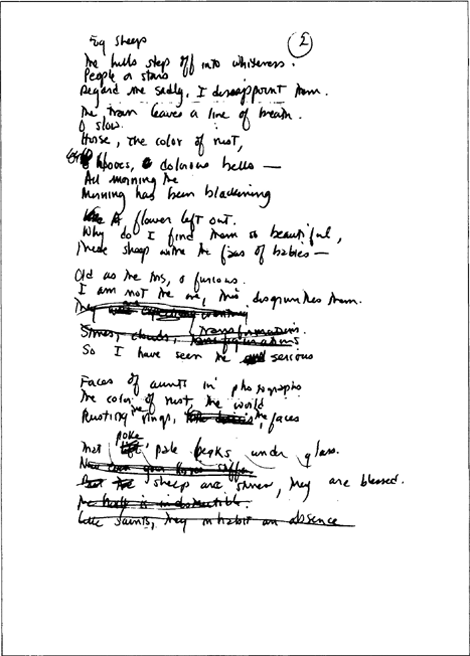 Sheep
②
The hills step off into whiteness.
People or stars
Regard me sadly, I disappoint them.
The train leaves a line of breath.
O slow
Horse, the color of rust,
Hooves, dolorous bells —
All morning the
Morning has been blackening
A flower left out.
Why do I find them so beautiful,
These sheep with the faces of babies —
Old as the , o furious.
I am not the one, this disgruntles them.
They
transformations.
Stones, clouds, transfigurations
So I have seen the serious
Faces of aunts in photographs
The color of rust, the world
Rusting the rings, the faces
poke
That , pale beaks under glass.
Now even your
But the sheep are , they are blessed.
The is indestructible.
Little saints, they inhabit an absence